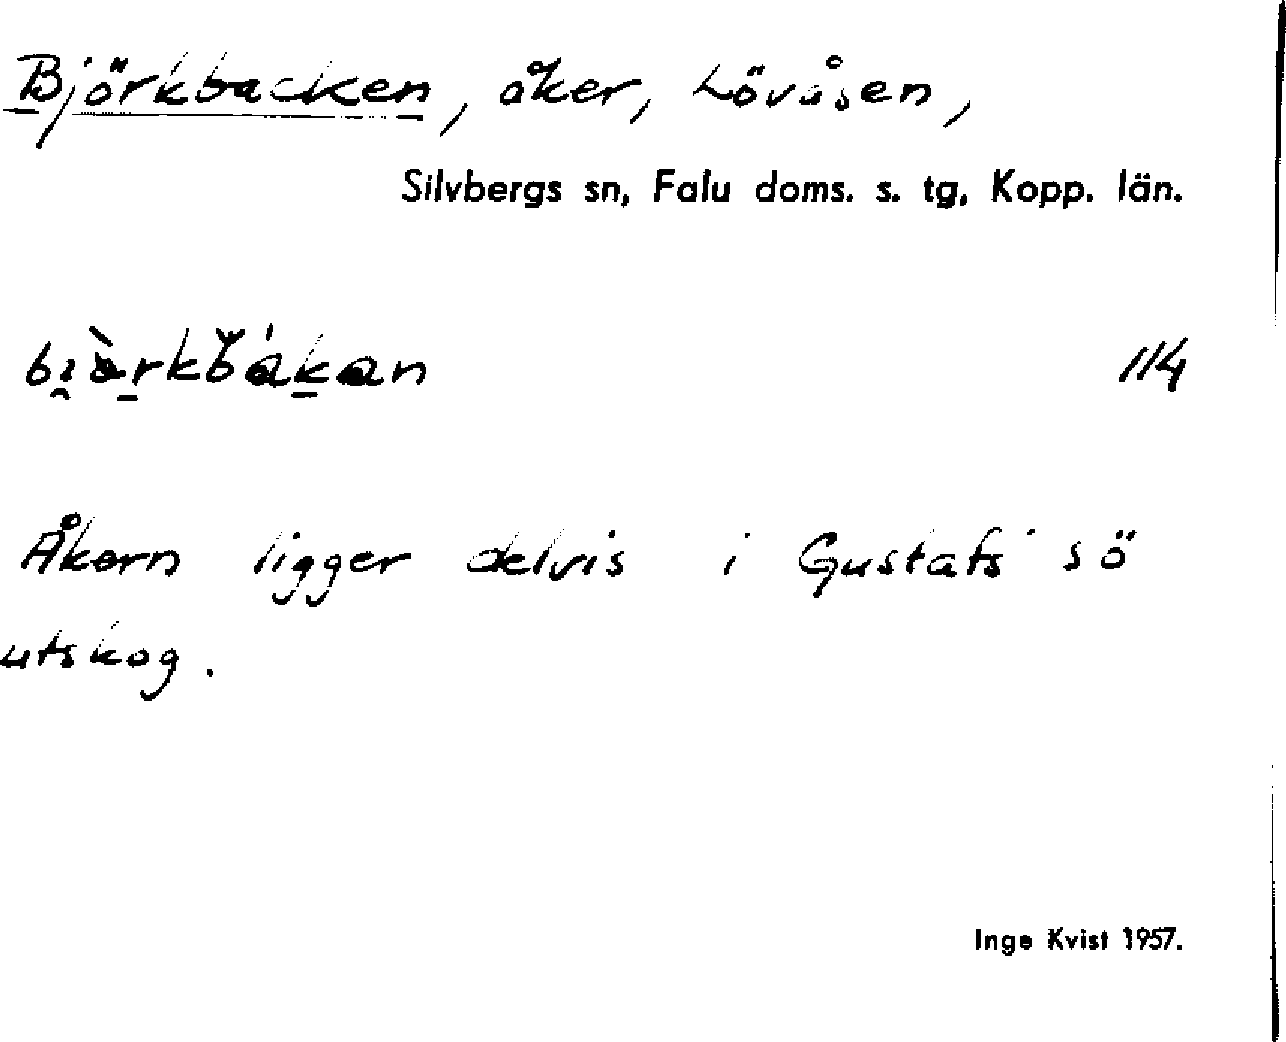 Björkbacken, åker, Lövåsen,
Silvbergs sn, Falu doms. s. tg, Kopp. län.
114
Åkern ligger delvis i Gustafs' sö
utskog.
Inge Kvist 1957.